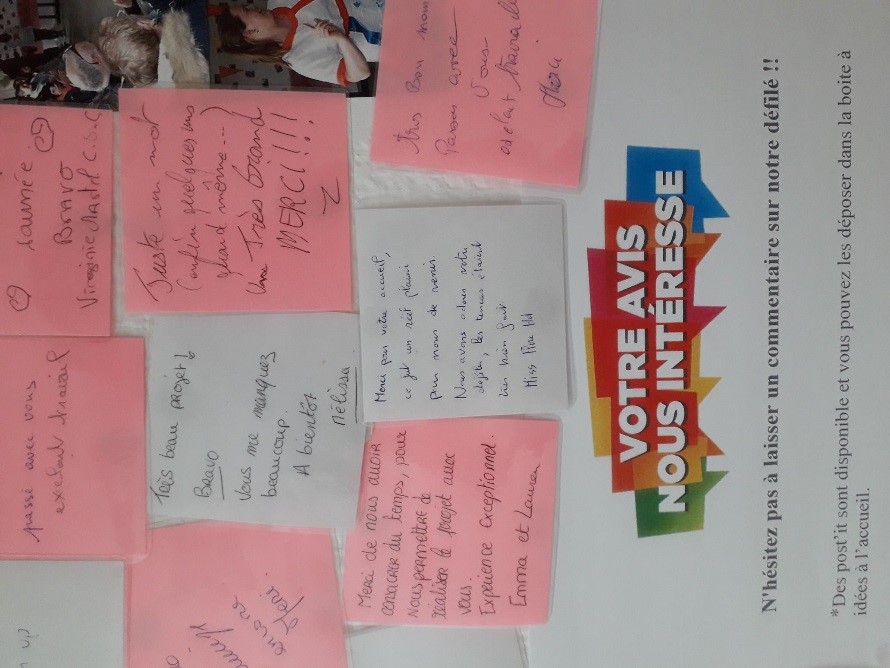 n up
passé avec vous
exelent travail
Journée
Bravo
Virginie
C.S.C
Très beau projet !
Bravo
Vous me manquez
beaucoup.
A bientôt
Mélissa
Juste un mot
(enfin quelques uns
quand même...)
Une Très Grand
MERCI !!!
Merci de nous avoir
consacrer du temps, pour
Nous permettre de
réaliser le projet avec
vous.
Expérience exceptionnel.
Emma et Lauren
Merci pour votre accueil,
ce fut un réel plaisir
pour nous de venir.
Nous avons adorés votre
défilé, les tenues étaient
très bien fait
Miss
très Bon mom
Passé avec
Vous
exelent travail
Merci
VOTRE AVIS
NOUS INTÉRESSE
N'hésitez pas à laisser un commentaire sur notre défilé !!
*Des post'it sont disponible et vous pouvez les déposer dans la boite à
idées à l'accueil.